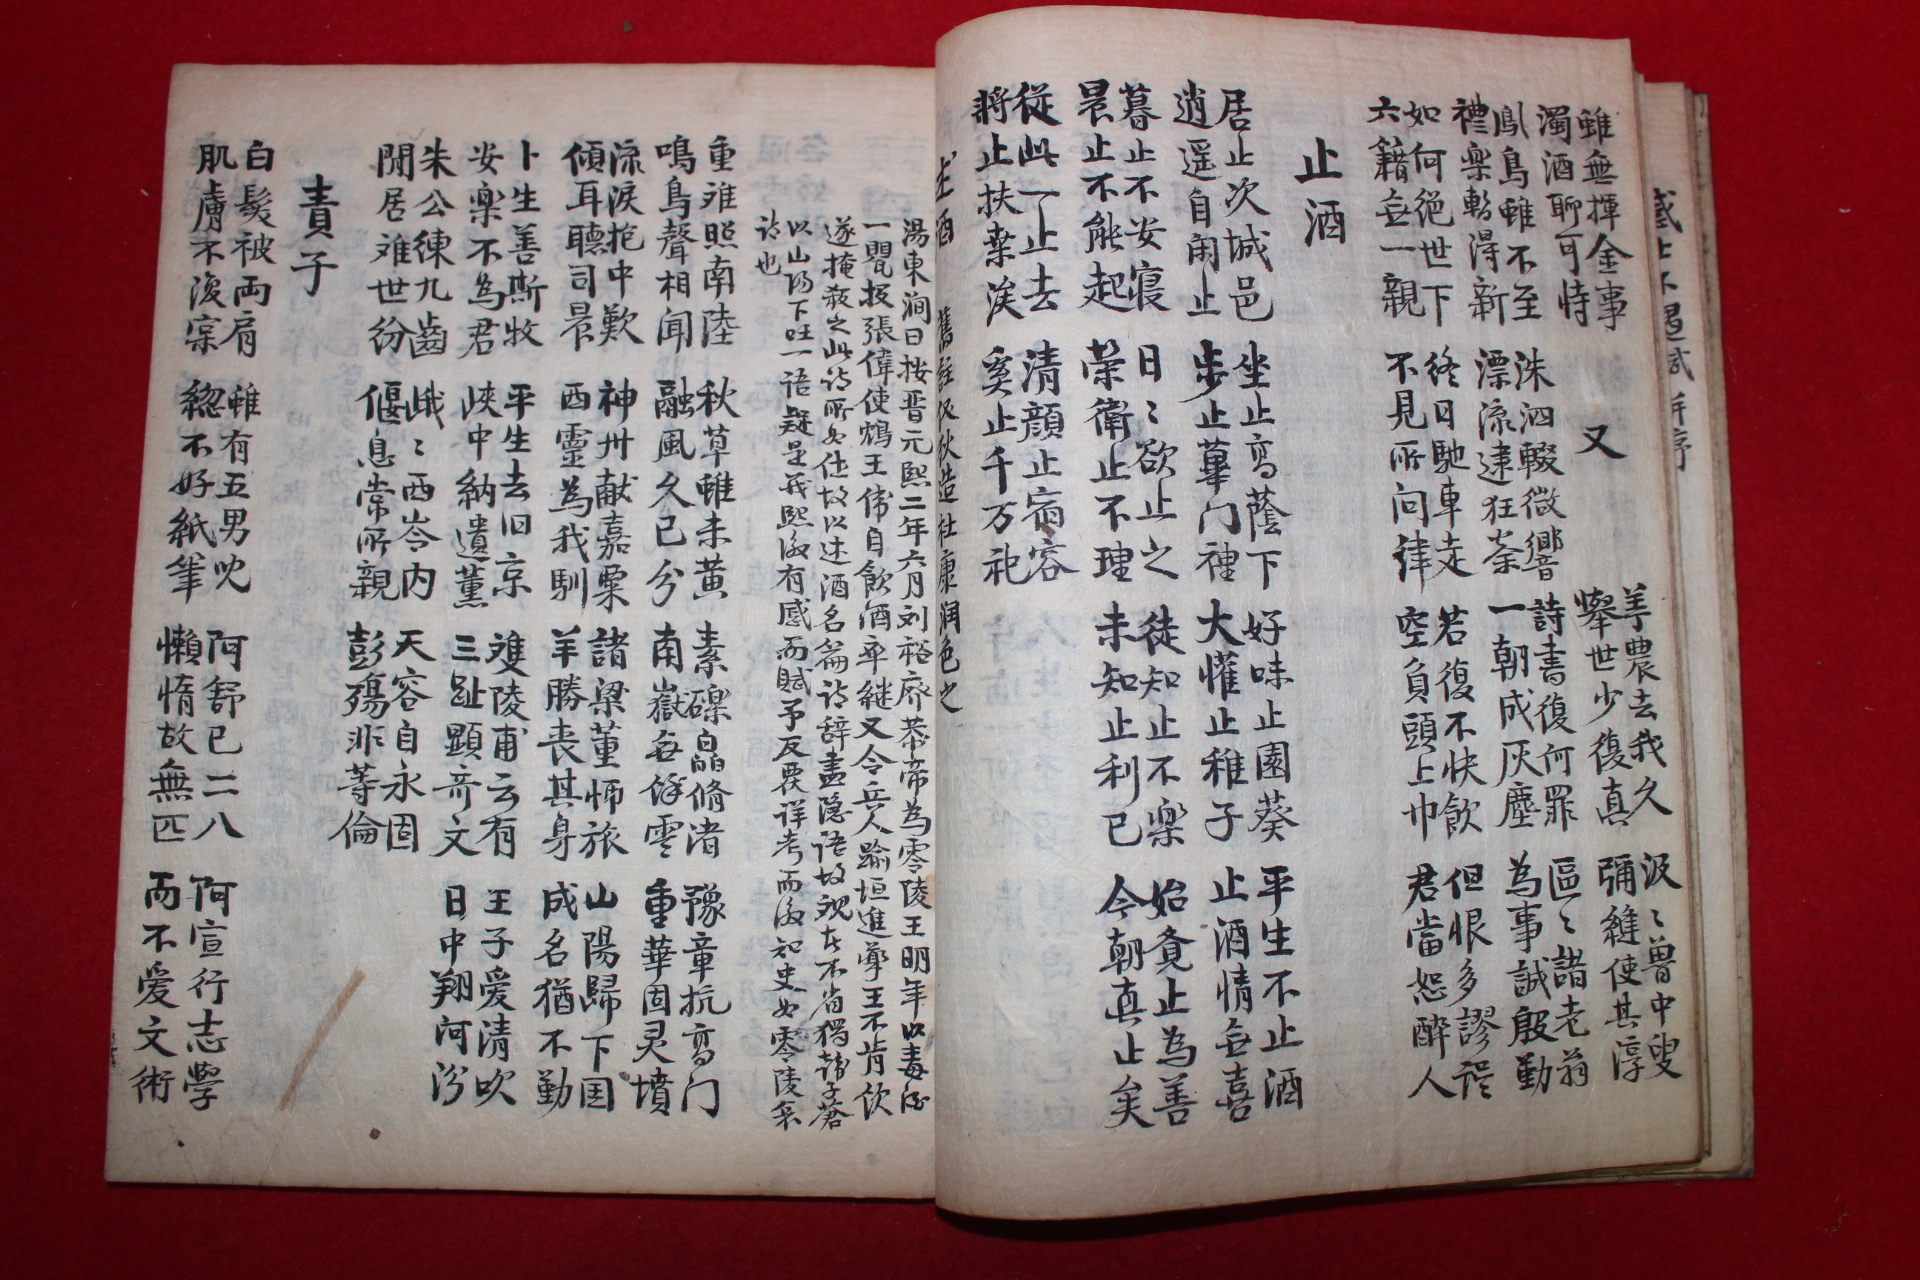 感士不遇賦 并序
雖無揮金事
濁酒聊可恃
又
羲農去我久
舉世少復真
汲〻魯中叟
彌縫使其淳
鳳鳥雖不至
禮楽暫得新
洙泗輟微響
漂流逮狂秦
詩書復何罪
一朝成灰塵
區〻諸老翁
為事誠殷勤
如何絕世下
六籍無一親
終日馳車走
不見所问津
若復不快飲
空負頭上巾
但恨多謬誤
君當恕醉人
止酒
居止次城邑
逍遥自闲止
坐止高蔭下
步止蓽门裡
好味止園葵
大懽止稚子
平生不止酒
止酒情無喜
暮止不安寝
晨止不能起
日〻欲止之
榮衛止不理
徒知止不樂
未知止利己
始覚止為善
今朝真止矣
從此一止去
將止扶桒涘
清顔止宿容
奚止千万祀
述酒 舊註儀狄造杜康润色之
湯東澗曰按晋元熙二年六月刘裕廃恭帝為零陵王明年以毒酒
一甖授張偉使鴆王偉自飲酒卒継又令兵人踰垣進藥王不肯飲
遂掩殺之此詩所為作故以述酒名篇詩辞盡隐語故观者不省獨韓子蒼
以山陽下国一語疑是義熙後有感而賦予反覆詳考而後知史為零陵哀
詩也
重难照南陸
鳴鳥聲相聞
秋草雖未黄
融風久已分
素礫皛脩渚
南嶽無餘雲
豫章抗高门
重華固灵墳
流涙抱中歎
傾耳聽司晨
神州献嘉粟
西靈為我馴
諸梁董師旅
羊勝丧其身
山陽歸下国
成名猶不勤
卜生善斯牧
安楽不為君
平生去旧京
峽中納遺薰
雙陵甫云有
三趾顯奇文
王子愛清吹
日中翔河汾
朱公練九齒
閒居难世纷
峨〻西岑内
偃息常所親
天容自永固
彭殤非等倫
責子
白髮被両肩
肌膚不復实
雖有五男児
総不好紙筆
阿舒已二八
懶惰故無匹
阿宣行志學
而不愛文術